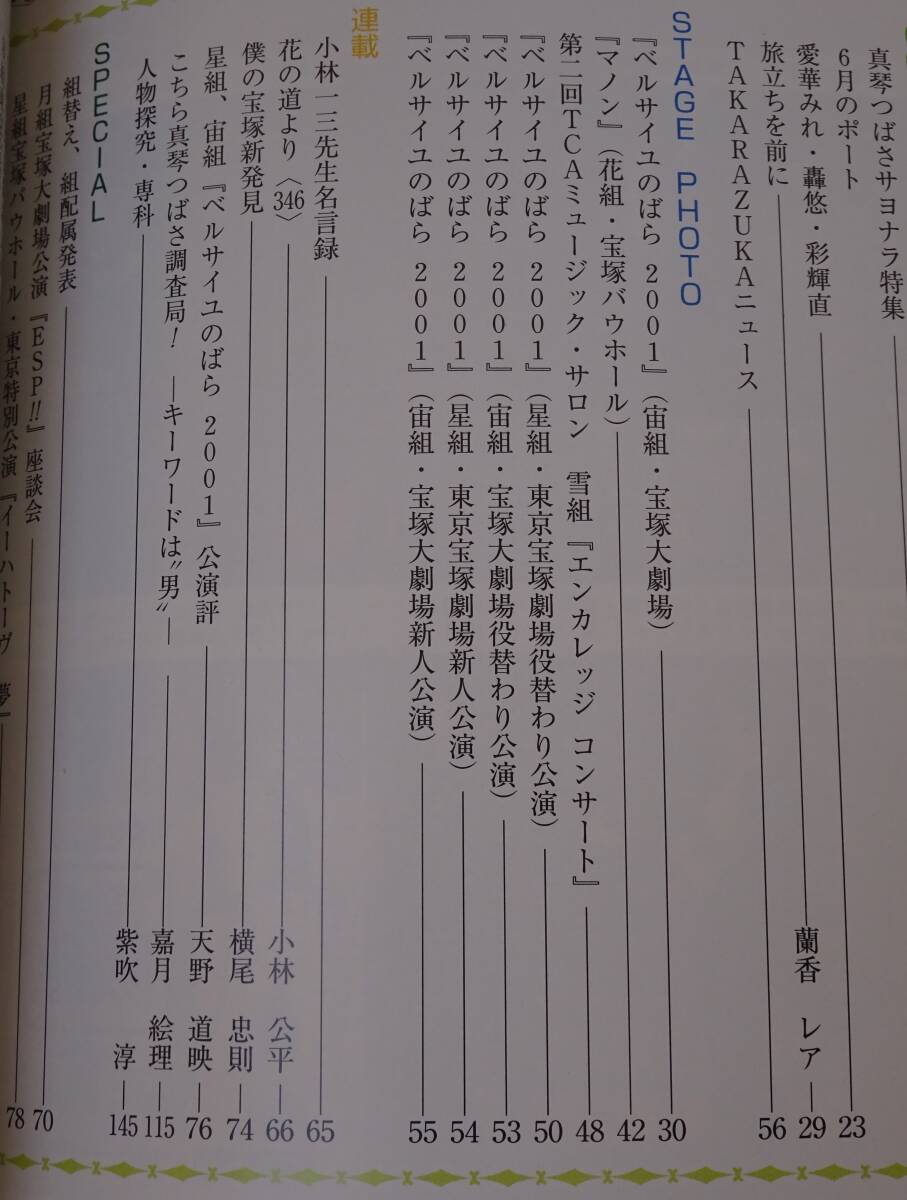 真琴つばさサヨナラ特集
6月のポート
愛華みれ・轟悠・彩輝直 23
旅立ちを前に 蘭香 レア 29
TAKARAZUKAニュース 56
STAGE PHOTO
『ベルサイユのばら 2001』(宙組・宝塚大劇場) 30
『マノン』(花組・宝塚バウホール) 42
第二回TCAミュージック・サロン 雪組『エンカレッジ コンサート』 48
『ベルサイユのばら 2001』(星組・東京宝塚劇場役替わり公演) 50
『ベルサイユのばら 2001』(宙組・宝塚大劇場役替わり公演) 53
『ベルサイユのばら 2001』(星組・東京宝塚劇場新人公演) 54
『ベルサイユのばら 2001』(宙組・宝塚大劇場新人公演) 55
連載
小林一三先生名言録 65
花の道より〈346〉 小林 公平 66
僕の宝塚新発見 横尾 忠則 74
星組、宙組『ベルサイユのばら 2001』公演評 天野 道映 76
こちら真琴つばさ調査局! ―キーワードは〝男〟― 嘉月 絵理 115
人物探究・専科 紫吹 淳 145
SPECIAL
組替え、組配属発表 70
月組宝塚大劇場公演『ESP!!』座談会 78
星組宝塚バウホール・東京特別公演『イーハトーヴ 夢』